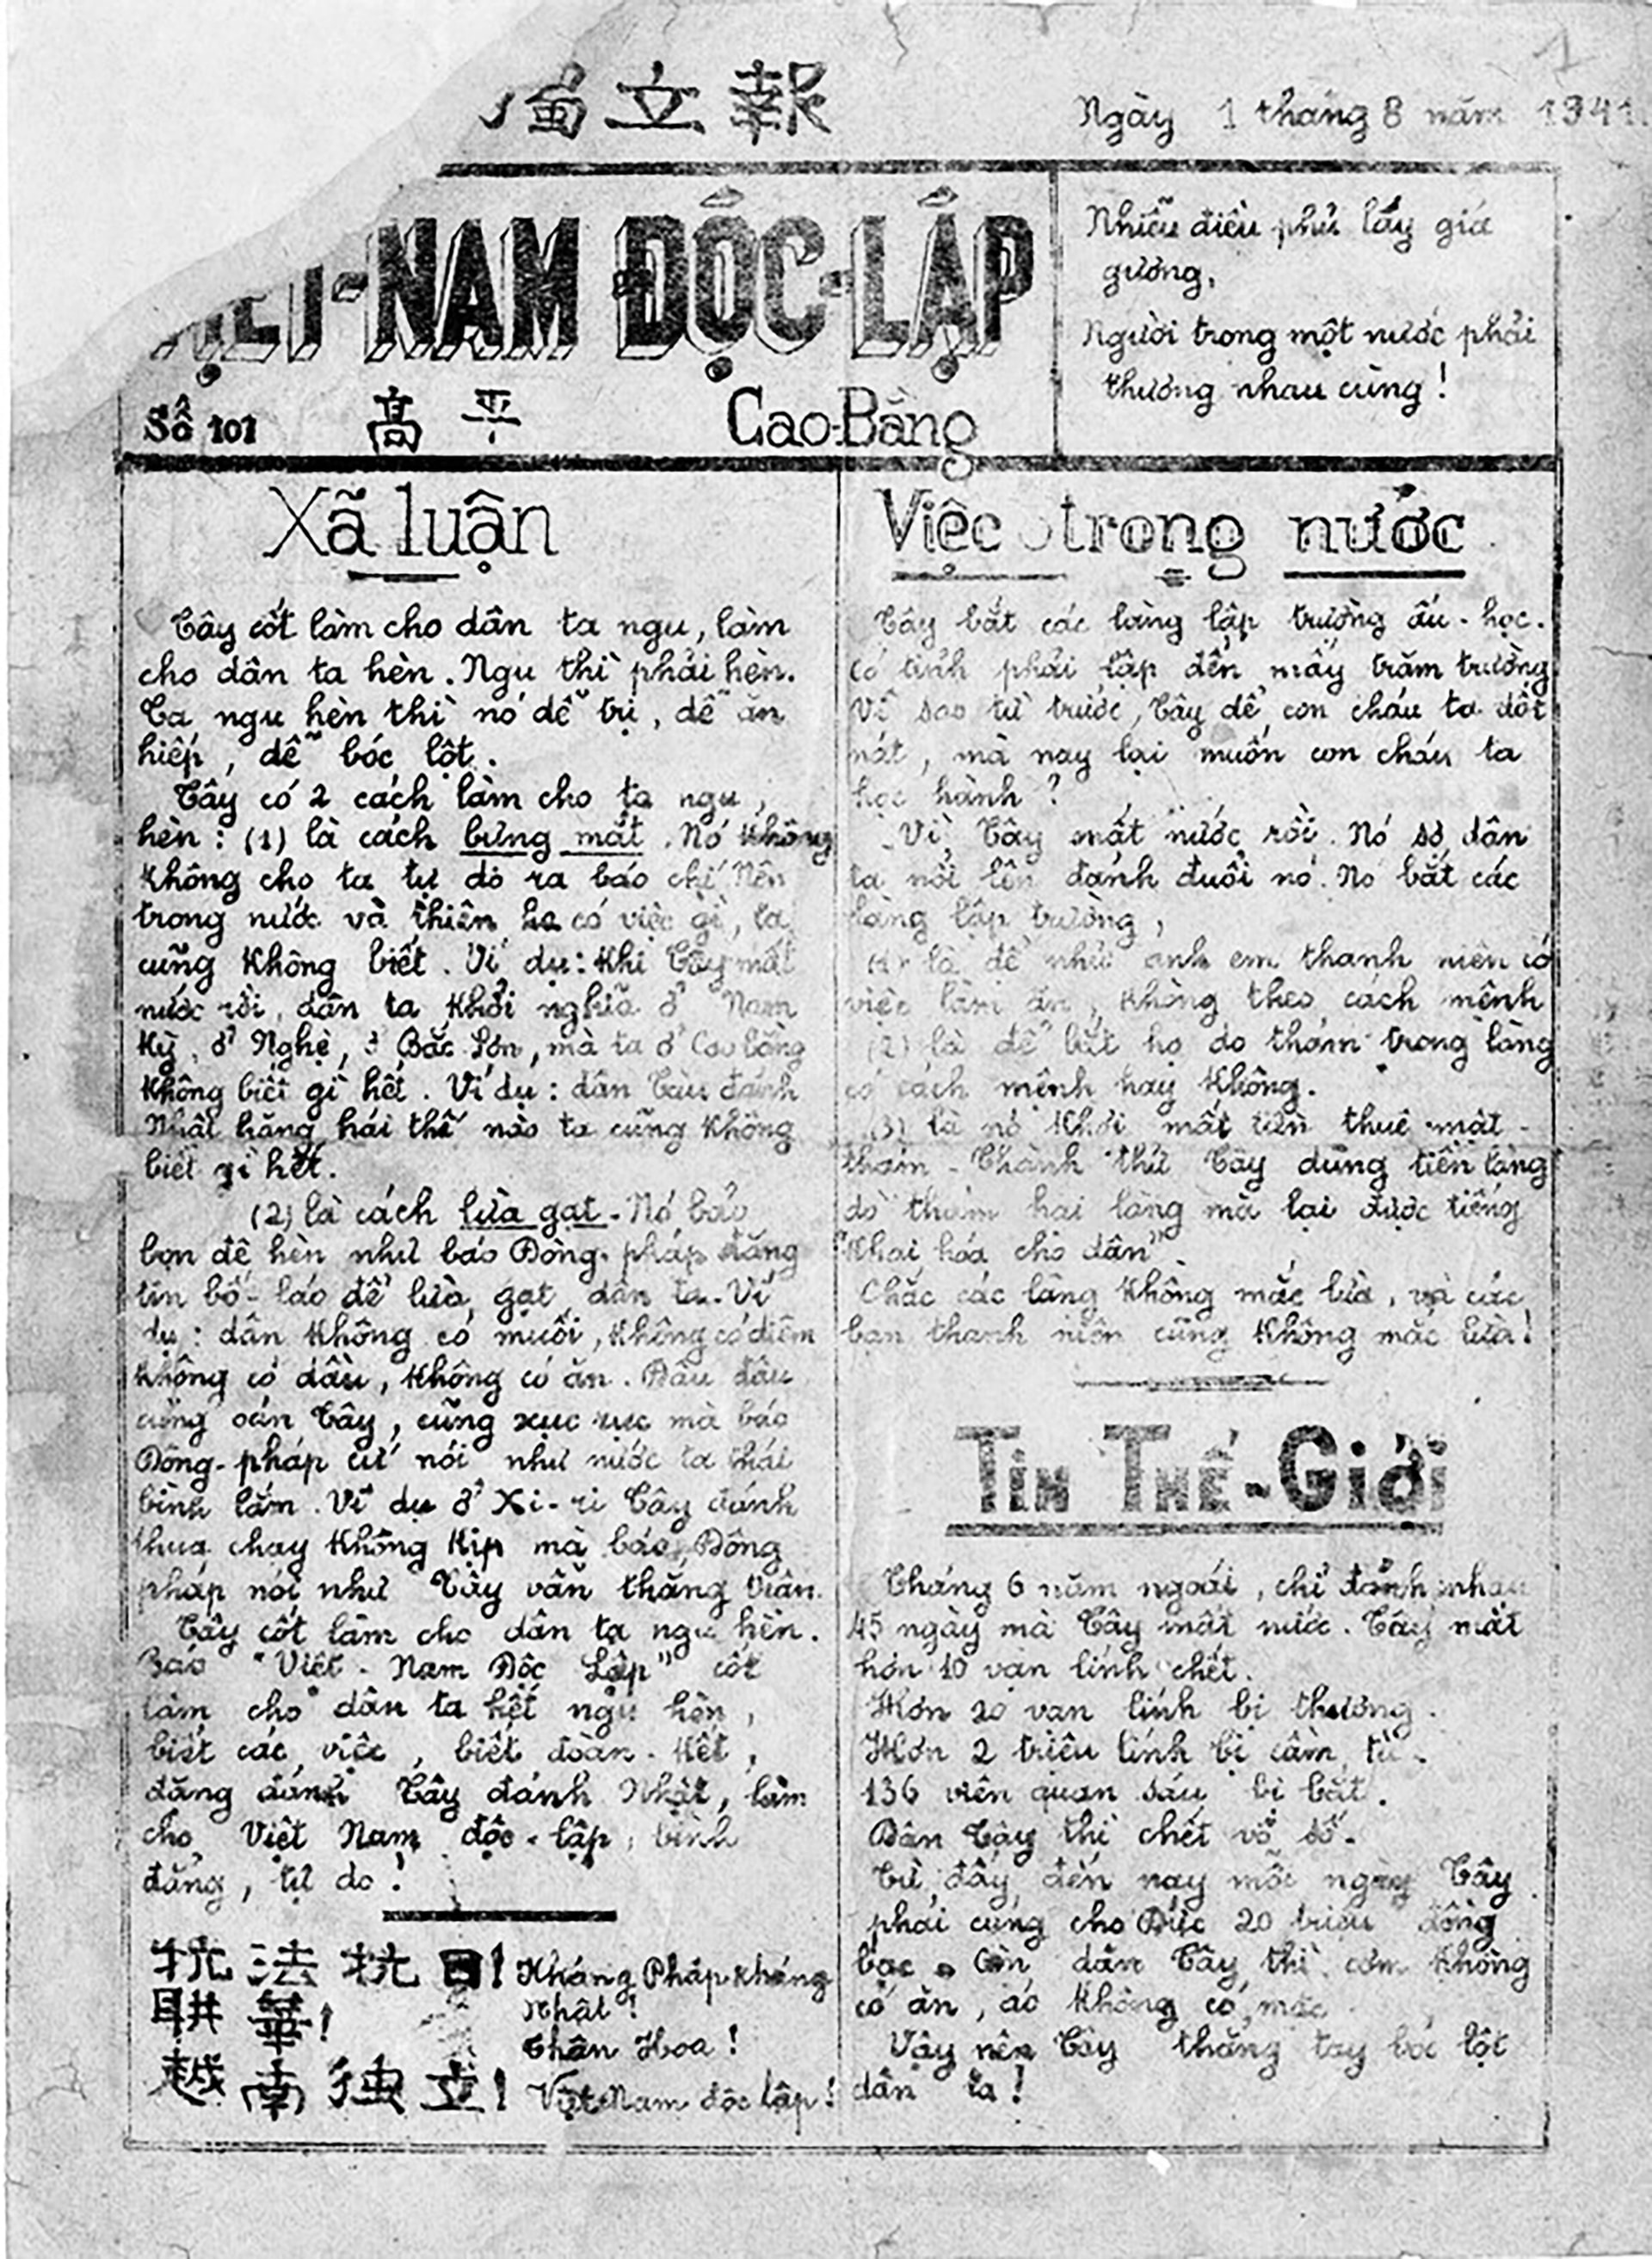 獨立報
Ngày 1 tháng 8 năm 1941.
VIỆT-NAM ĐỘC-LẬP
Nhiễu điều phủ lấy giá
gương,
Người trong một nước phải
thương nhau cùng!
Số 101 高平 Cao-Bằng
Xã luận
Tây cốt làm cho dân ta ngu, làm
cho dân ta hèn. Ngu thì phải hèn.
Ta ngu hèn thì nó dễ trị, dễ ăn
hiếp, dễ bóc lột.
Tây có 2 cách làm cho ta ngu,
hèn: (1) là cách bưng mắt. Nó không
không cho ta tự do ra báo chí. Nên
trong nước và thiên hạ có việc gì, ta
cũng không biết. Ví dụ: khi Tây mất
nước rồi, dân ta khởi nghĩa ở Nam
Kỳ, ở Nghệ, ở Bắc Sơn, mà ta ở Cao bằng
không biết gì hết. Ví dụ: dân Tàu đánh
Nhật hăng hái thế nào ta cũng không
biết gì hết.
(2) là cách lừa gạt. Nó bảo
bọn đê hèn như báo Đông-pháp đăng
tin bố-láo để lừa gạt dân ta. Ví
dụ: dân không có muối, không có diêm
không có dầu, không có ăn. Đâu đâu
cũng oán Tây, cũng xục rục mà báo
Đông-pháp cứ nói như nước ta thái
bình lắm. Ví dụ ở Xi-ri Tây đánh
thua chạy không kịp mà báo Đông
pháp nói như Tây vẫn thắng
Tây cốt làm cho dân ta ngu hèn.
Báo "Việt-Nam Độc Lập" cốt
làm cho dân ta hết ngu hèn,
biết các việc, biết đoàn-kết,
đặng đánh Tây đánh Nhật, làm
cho Việt Nam độc-lập, bình
đẳng, tự do!
抗法抗日! Kháng Pháp kháng
Nhật!
聯華! Thân Hoa!
越南独立! Việt-Nam độc lập!
Việc trong nước
Tây bắt các làng lập trường ấu-học.
Có tỉnh phải lập đến mấy trăm trường
Vì sao từ trước, Tây để con cháu ta dốt
nát, mà nay lại muốn con cháu ta
học hành?
Vì Tây mất nước rồi. Nó sợ dân
ta nổi lên đánh đuổi nó. Nó bắt các
làng lập trường,
(1) là để nhử anh em thanh niên có
việc làm ăn, không theo cách mệnh
(2) là để bắt họ dò thám trong làng
có cách mệnh hay không.
(3) là nó khỏi mất tiền thuê mật-
thám. Thành thử Tây dùng tiền làng
dò thám hại làng mà lại được tiếng
"khai hóa cho dân".
Chắc các làng không mắc lừa, và các
bạn thanh niên cũng không mắc lừa!
TIN THẾ-GIỚI
Tháng 6 năm ngoái, chỉ đánh nhau
45 ngày mà Tây mất nước. Tây mất
hơn 10 vạn lính chết.
Hơn 20 vạn lính bị thương.
Hơn 2 triệu lính bị cầm tù.
136 viên quan sáu bị bắt.
Dân Tây thì chết vô số.
Từ đấy đến nay mỗi ngày Tây
phải cung cho Đức 20 triệu đồng
bạc. Còn dân Tây thì cơm không
có ăn, áo không có mặc
Vậy nên Tây thẳng tay bóc lột
dân ta!